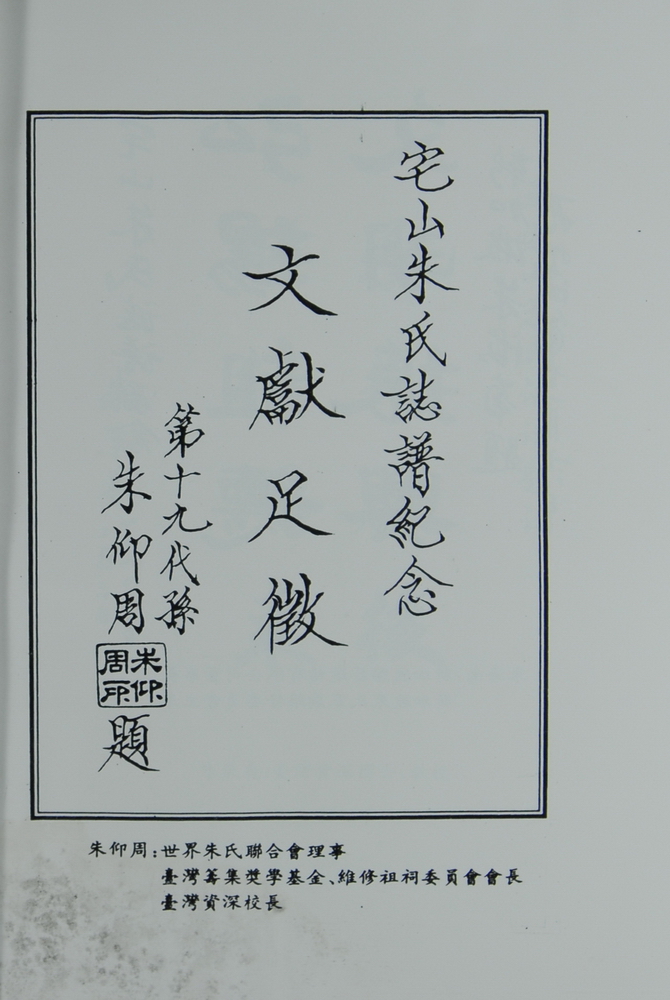 宅山朱氏誌譜紀念
文獻足徵
第十九代孫
朱仰周
朱仰周印
題
朱仰周：世界朱氏聯合會理事
臺灣籌集獎學基金、維修祖祠委員會會長
臺灣資深校長